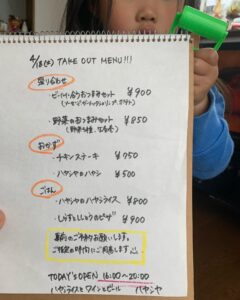 4/18(土) TAKE OUT MENU!!!
盛り合わせ
・ビールに合うおつまみセット ¥900
・野菜のおつまみセット ¥850
おかず
・チキンステーキ ¥750
・ハヤシヤのハヤシ ¥500
ごはん
・ハヤシヤのハヤシライス ¥800
・しらすとしょうゆのピザ ¥900
事前のご予約お願いします。
ご指定の時間にご用意します
TODAY'S OPEN 16:00〜20:00
ハヤシライスとワインとビール ハヤシヤ